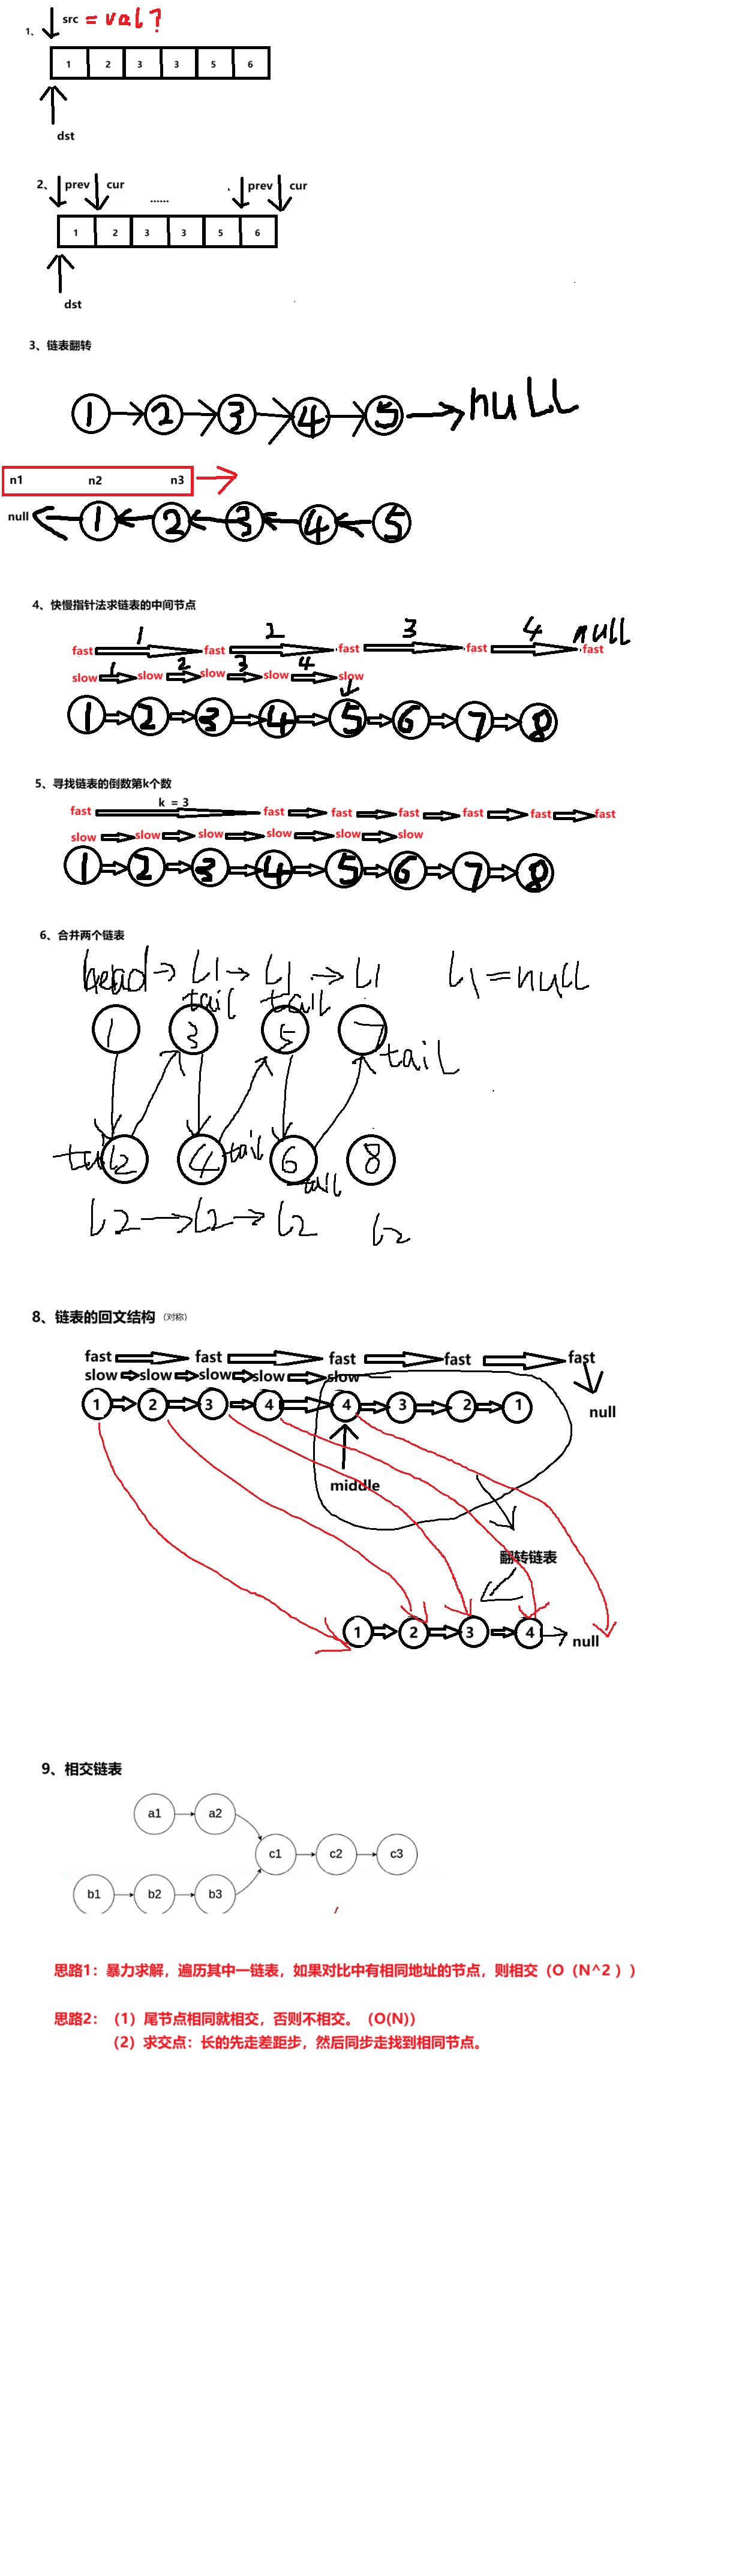 src = val?
1、
1 2 3 3 5 6
dst
2、 prev cur ...... 、 prev cur
1 2 3 3 5 6
dst
3、链表翻转
1 2 3 4 5 null
n1 n2 n3
null 1 2 3 4 5
4、快慢指针法求链表的中间节点
1 2 3 4 null
fast fast fast fast fast
1 2 3 4
slow slow slow slow slow
1 2 3 4 5 6 7 8
5、寻找链表的倒数第k个数
k = 3
fast fast fast fast fast fast fast
slow slow slow slow slow slow
1 2 3 4 5 6 7 8
6、合并两个链表
head L1 L1 L1 L1=null
tail tail
1 3 5 7
tail
tail 2 4 tail 6 8
tail
L2 L2 L2 L2
8、链表的回文结构 (对称)
fast fast fast fast fast
slow slow slow slow slow
1 2 3 4 4 3 2 1
null
middle
翻转链表
1 2 3 4 null
9、相交链表
a1 a2
c1 c2 c3
b1 b2 b3
思路1：暴力求解，遍历其中一链表，如果对比中有相同地址的节点，则相交（O（N^2 ））
思路2：（1）尾节点相同就相交，否则不相交。（O(N)）
（2）求交点：长的先走差距步，然后同步走找到相同节点。